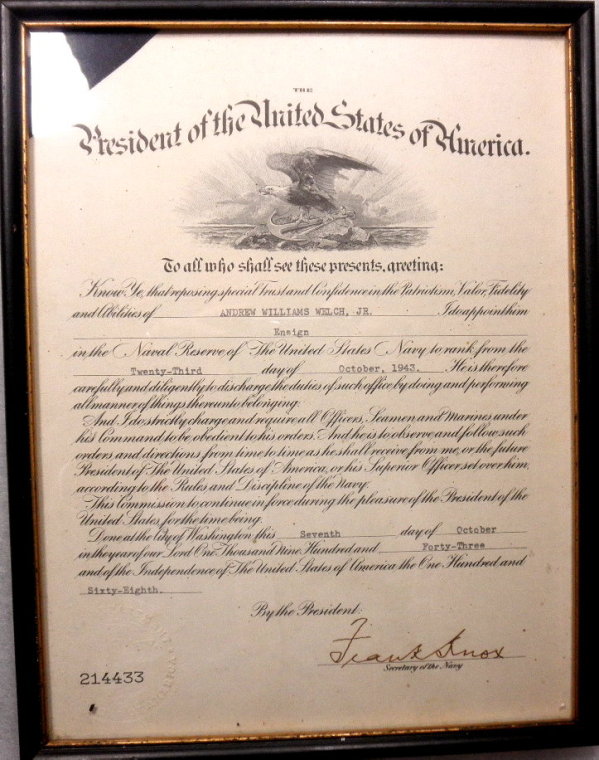 THE
President of the United States of America.
To all who shall see these presents, greeting:
Know Ye, that reposing special Trust and Confidence in the Patriotism, Valor, Fidelity
and Abilities of ANDREW WILLIAMS WELCH, JR. I do appoint him
Ensign
in the Naval Reserve of The United States Navy to rank from the
Twenty-Third day of October, 1943. He is therefore
carefully and diligently to discharge the duties of such office by doing and performing
all manner of things thereunto belonging.
And I do strictly charge and require all Officers, Seamen and Marines under
his Command to be obedient to his orders. And he is to observe and follow such
orders and directions from time to time as he shall receive from me, or the future
President of The United States of America, or his Superior Officer set over him,
according to the Rules and Discipline of the Navy.
This Commission to continue in force during the pleasure of the President of the
United States for the time being.
Done at the City of Washington this Seventh day of October
in the year of our Lord One Thousand Nine Hundred and Forty-Three
and of the Independence of The United States of America the One Hundred and
Sixty-Eighth.
By the President:
Frank Knox
Secretary of the Navy
214433